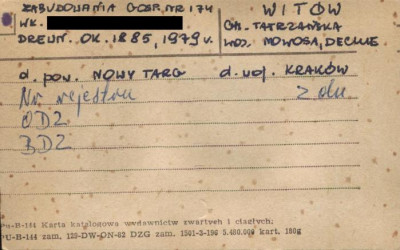 ZABUDOWANIA GOSP. NR 174
WŁ.
DREWN. OK. 1885, 1979 r.
WITÓW
GM. TATRZAŃSKA
WOJ. NOWOSĄDECKIE
d. pow. NOWY TARG d. woj. KRAKÓW
Nr. rejestru z dn.
ODZ
BDZ
Pu-B-144 Karta katalogowa wydawnictw zwartych i ciągłych.
PU-B-144 zam. 129-DW-ON-62 DZG zam. 1501-3-196 5.400.00 kart. 160g